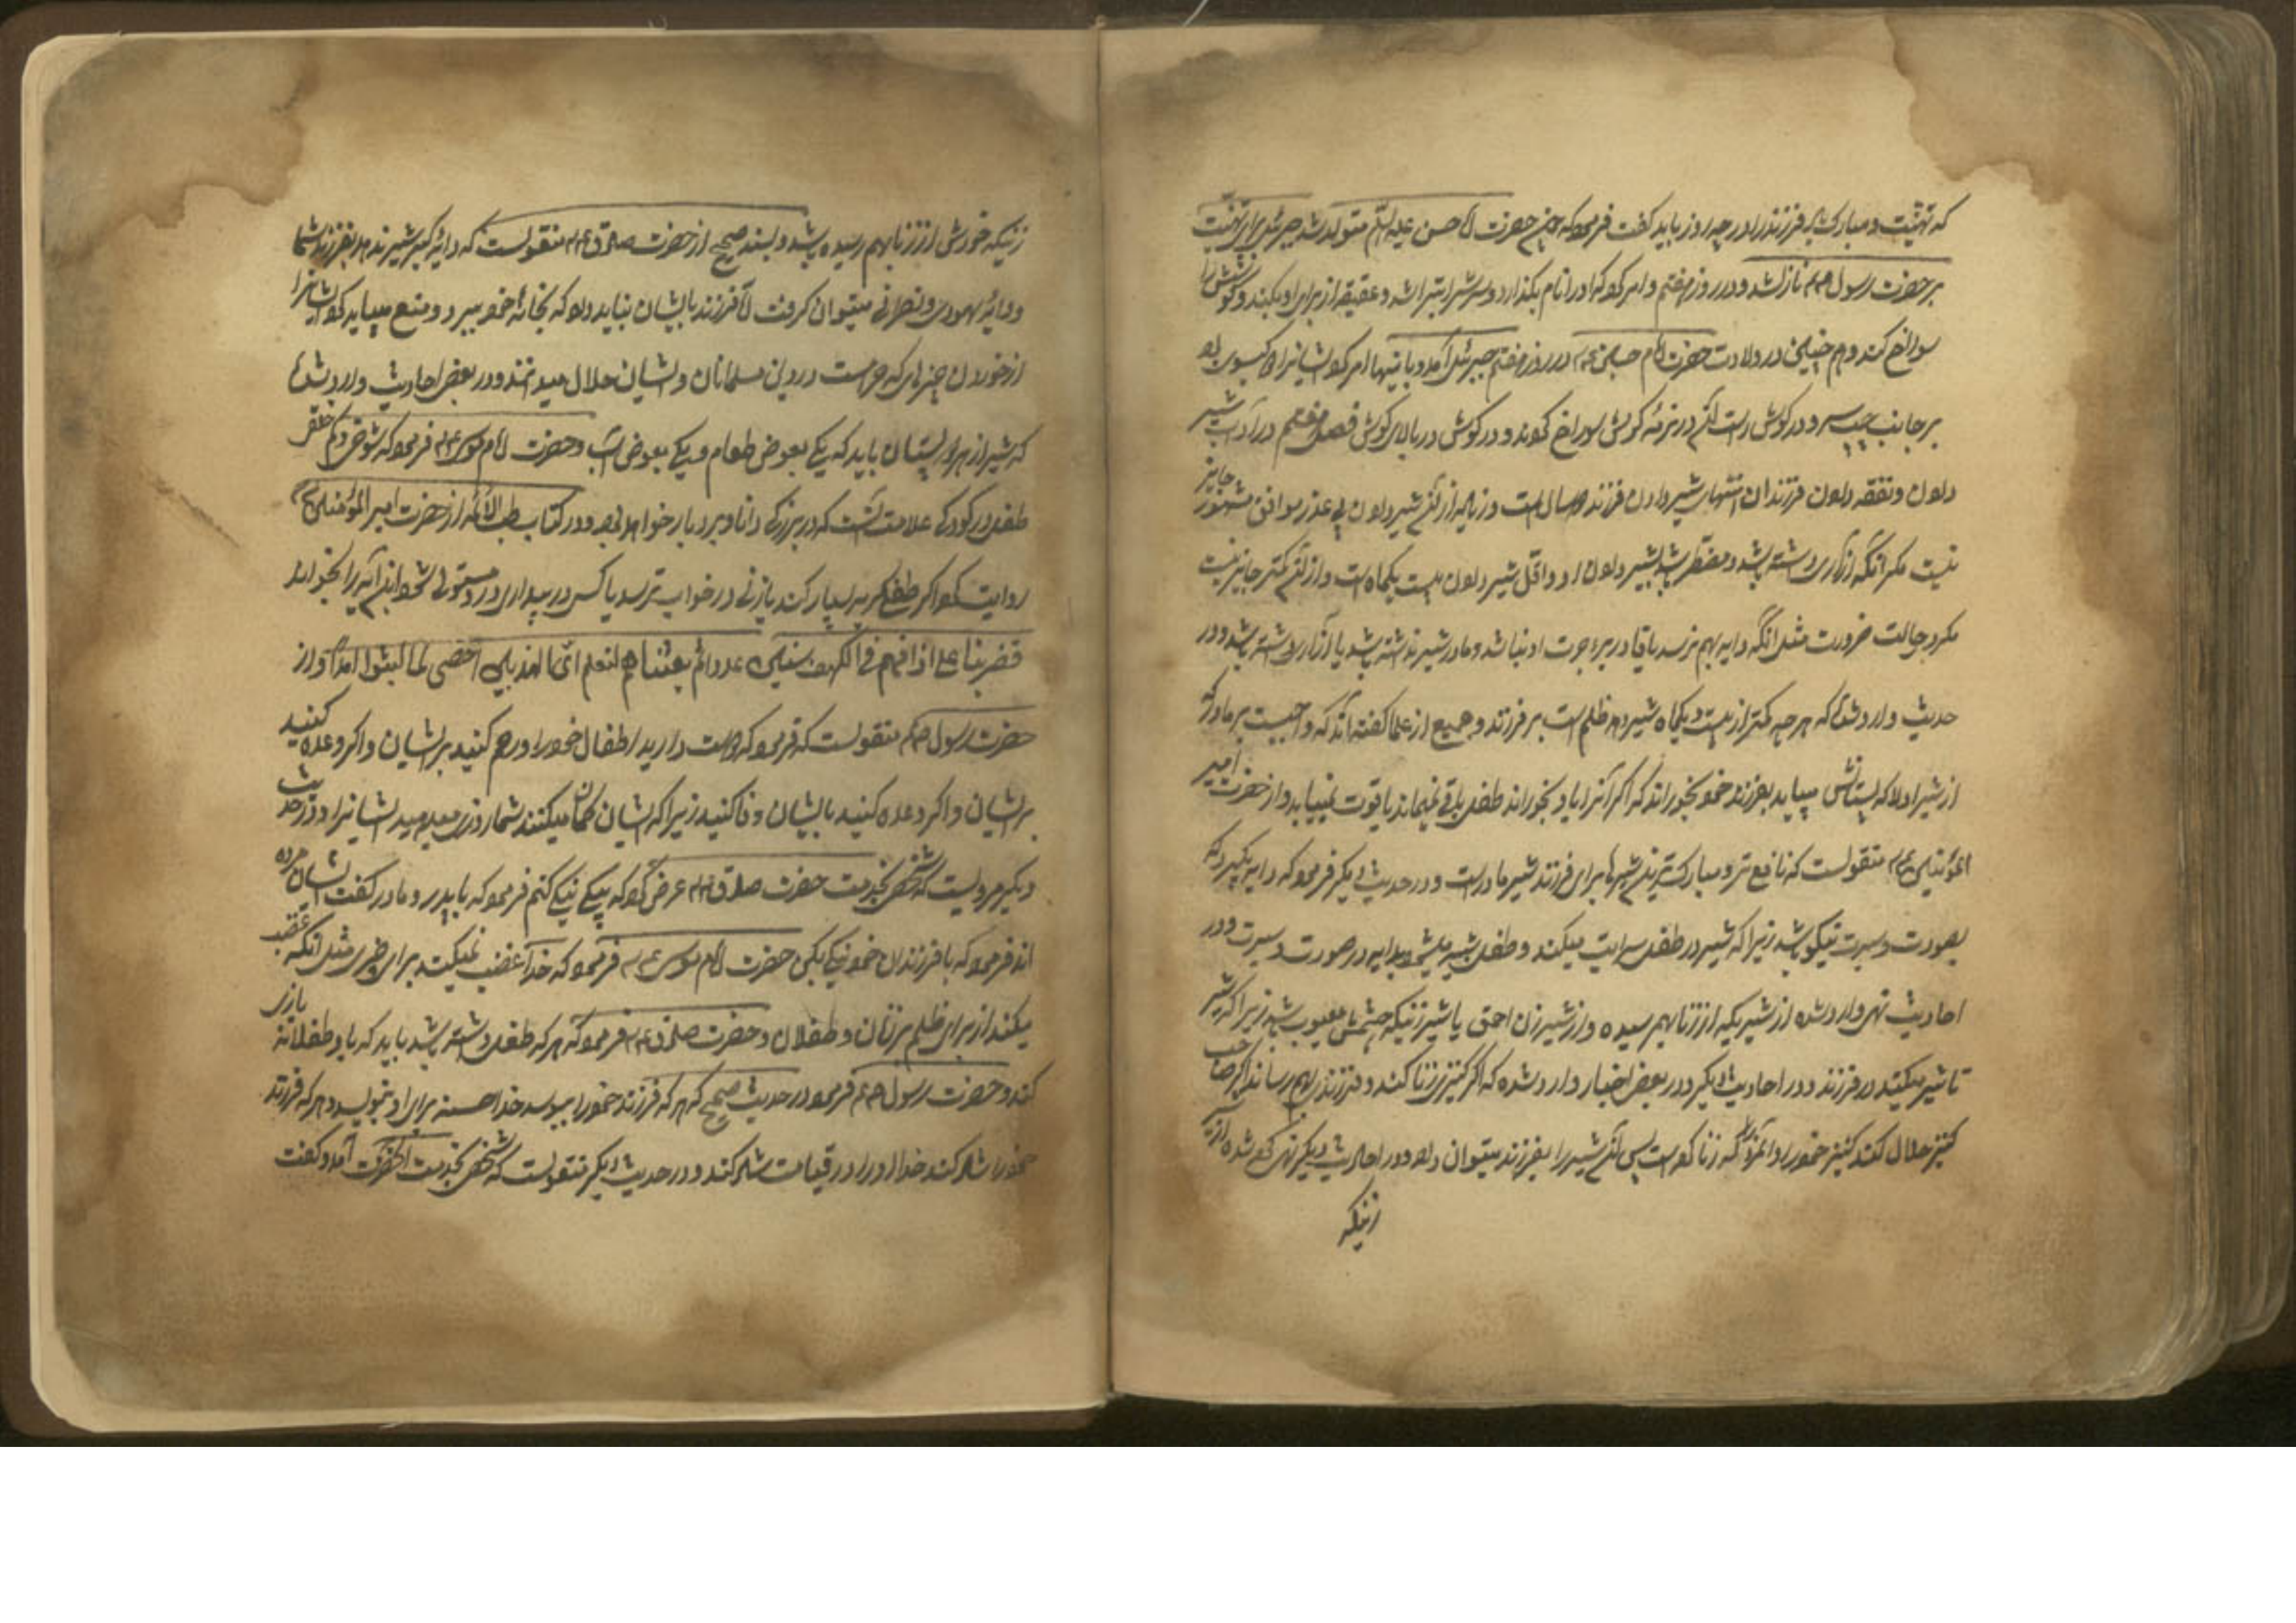 که تهنیت و مبارک باد فرزند را در چه روز باید گفت فرمود که چون حضرت امام حسن علیه السلام متولد شد جبرئیل برای تهنیت
بر حضرت رسول نازل شد و در روز هفتم و امر کرد که او را نام بگذارد و سرش را بتراشد و عقیقه از برای او بکند و گوشش را
سوراخ کند و هم چنین در ولادت حضرت امام حسین در روز هفتم جبرئیل آمد و باینها امر کرد و ایشانرا دو گیسو بود
بر جانب چپ سر و در گوش راست در نرمه گوش سوراخ کردند و در گوش در بالای گوش فصل هفتم در آداب شیر
دادن و نفقه دادن فرزندان انتهای شیر دادن فرزند دو سال است و زیاده از آن شیر دادن بی عذر موافق مشهور جایز
نیست مگر آنکه آزاری داشته باشد و مضطر باشد بشیر دادن او و اقل شیر دادن بیست یکماه است و از آن کمتر جایز نیست
مگر در حالت ضرورت مثل آنکه دایه بهم نرسد یا قادر بر اجرت او نباشد و مادر شیر نداشته باشد یا آزاری داشته باشد و در
حدیث وارد شده که هر چه کمتر از بیست و یکماه شیر دهد ظلم است بر فرزند و جمیع از علما گفته اند که واجبست بر مادر که
از شیر اول که پستانش میاید بفرزند خود بخوراند که اگر آنرا باو نخوراند طفل باقی نمیماند یا قوت نمییابد و از حضرت امیر
المؤمنین منقولست که نافع تر و مبارک ترین شیرها برای فرزند شیر مادر است و در حدیث دیگر فرمود که دایه بگیرید که
بصورت و سیرت نیکو باشد زیرا که شیر در طفل سرایت میکند و طفل شبیه میشود بدایه در صورت و سیرت و در
احادیث نهی وارد شده از شیریکه از زنا بهم رسیده و از شیر زن احمق یا شیر زنیکه چشمش معیوب باشد زیرا که شیر
تاثیر میکند در فرزند و در احادیث دیگر و در بعض اخبار وارد شده که اگر کنیزی زنا کند و فرزندی بهم رساند اگر صاحب
کنیز حلال کند کنیز خود را و آنمرد را که زنا کرده است پس آن شیر را بفرزند میتوان داد و در احادیث دیگر نهی شده از
زنیکه
زنیکه خودش از زنا بهم رسیده باشد و بسند صحیح از حضرت صادق منقولست که دایه گبر شیر ندهد بفرزند شما
و دایه یهودی و نصرانی میتوان گرفت اما فرزند بایشان نباید داد که بخانه خود ببرد و منع میباید کرد ایشانرا
از خوردن چیزهای که حرامست در دین مسلمانان و ایشان حلال میدانند و در بعض احادیث وارد شده
که شیر از هر دو پستان باید که یکی بعوض طعام و یکی بعوض آب و حضرت امام موسی فرمود که شوخی و کم خلقی
طفل در کودکی علامت آنست که در بزرگی دانا و بردبار خواهد بود و در کتاب طب الائمه از حضرت امیر المؤمنین
روایت کرده اگر طفلی گریه بسیار کند یا زنی در خواب بترسد یا کسی در بیداری در دستولی شود این آیه را بخواند
فضربنا علی اذانهم فی الکهف سنین عددا ثم بعثناهم لنعلم ای الحزبین احصی لما لبثوا امدا و از
حضرت رسول منقولست که فرمود که دوست دارید اطفال خود را و رحم کنید بر ایشان و اگر وعده کنید
بر ایشان و اگر وعده کنید بایشان وفا کنید زیرا که ایشان گمان میکنند شما روزی میدهید ایشانرا و در حدیث
دیگر مرویست که شخصی بخدمت حضرت صادق عرض کرد که بکی نیکی کنم فرمود که با پدر و مادر گفت ایشان مرده
اند فرمود که با فرزندان خود نیکی بکن حضرت امام موسی فرمود که خدا غضب نمیکند برای چیزی مثل آنکه غضب
میکند از برای ظلم بر زنان و طفلان و حضرت صادق فرمود که هر که طفلی داشته باشد باید که با او طفلانه بازی
کند و حضرت رسول فرمود در حدیث صحیح که هر که فرزند خود را ببوسد خدا حسنه برای او بنویسد و هر که فرزند
خود را شاد کند خدا او را در قیامت شاد کند و در حدیث دیگر منقولست که شخصی بخدمت آنحضرت آمد و گفت